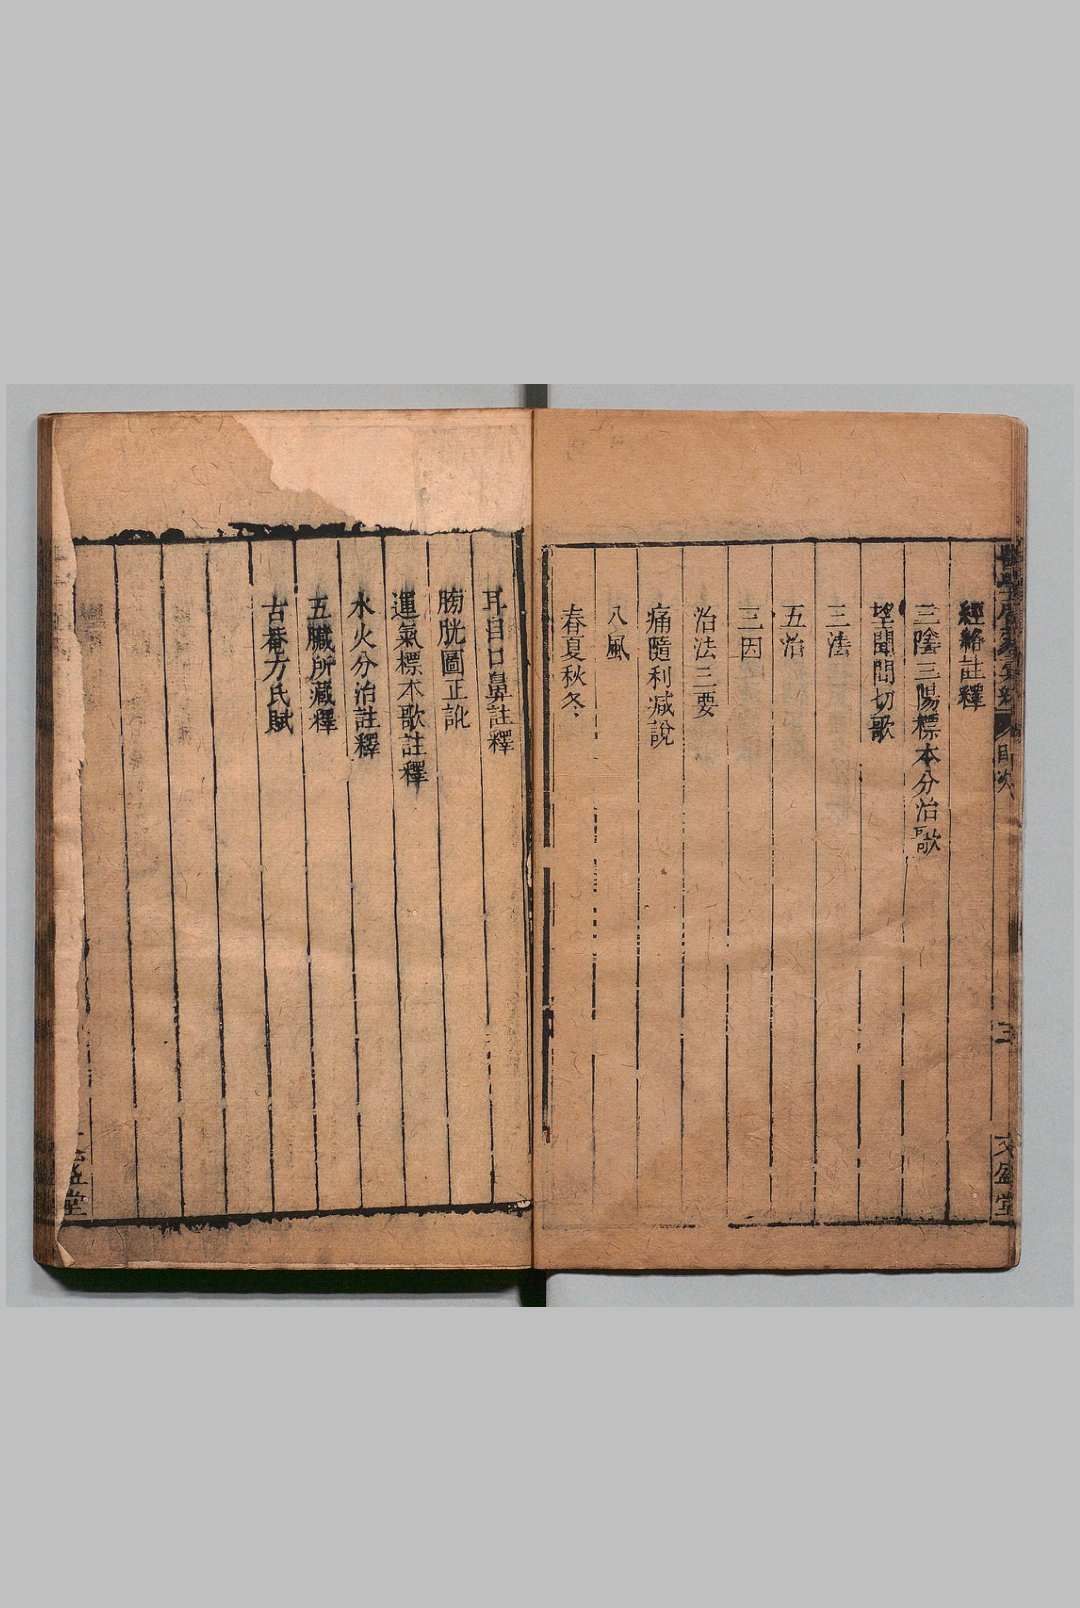 經絡註釋
三陰三陽標本分治歌
望聞問切歌
三法
五治
三因
治法三要
痛隨利減說
八風
春夏秋冬
耳目口鼻註釋
膀胱圖正訛
運氣標本歌註釋
水火分治註釋
五臟所藏釋
古菴方氏賦
目次
三
文盛堂
堂